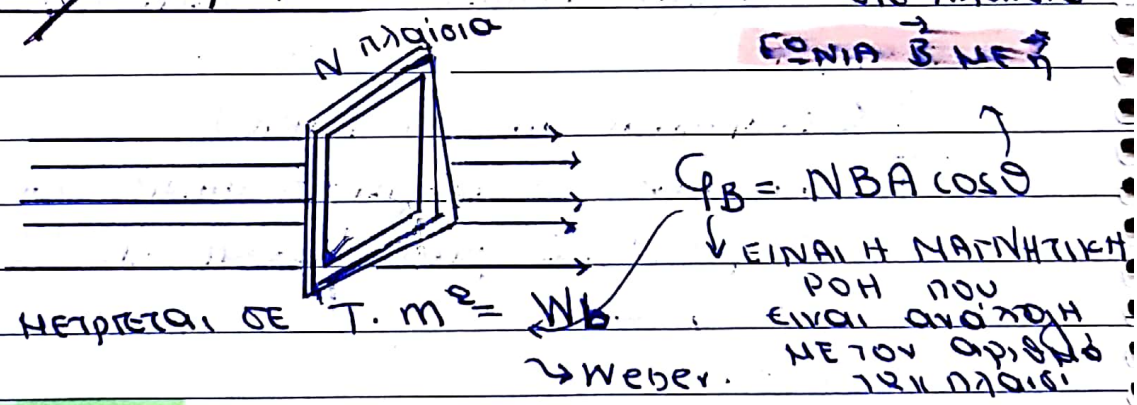 N πλαίσια
ΓΩΝΙΑ B ΜΕ n
φB = NBA cosθ
ΕΙΝΑΙ Η ΜΑΓΝΗΤΙΚΗ
ΡΟΗ που
είναι ανάλογη
ΜΕ τον αριθμό
των πλαισί
μετριεται σε T. m² = Wb.
Weber.